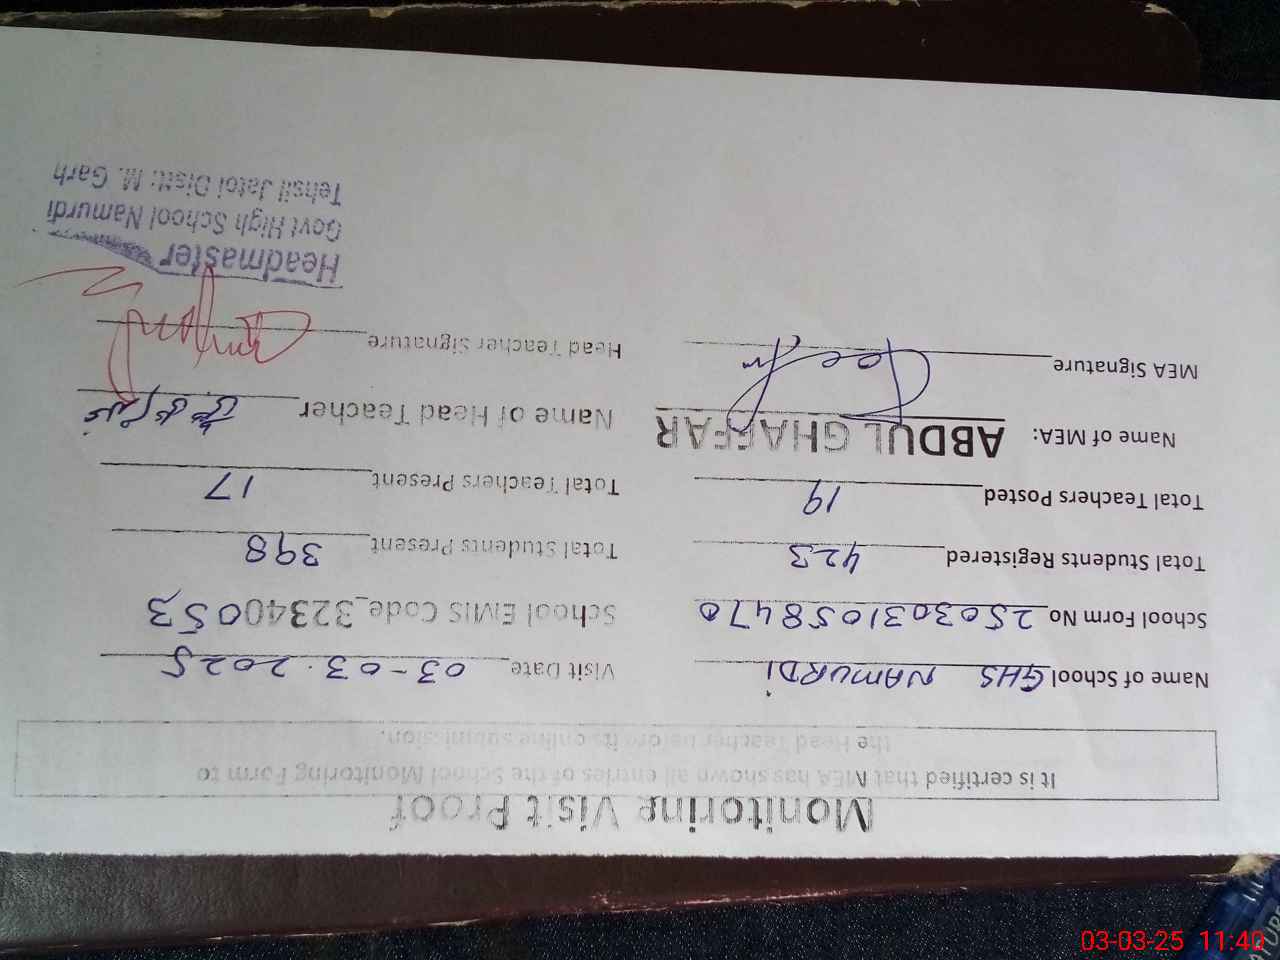 Monitoring Visit Proof
It is certified that MEA has shown all entries of the School Monitoring Form to
the Head Teacher before its online submission.
Name of School GHS NAMURDi Visit Date 03-03.2025
School Form No 2503031058470 School EMIS Code 32340053
Total Students Registered 423 Total Students Present 398
Total Teachers Posted 19 Total Teachers Present 17
Name of MEA: ABDUL GHAFFAR Name of Head Teacher
MEA Signature Head Teacher Signature
Headmaster
Govt High School Namurdi
Tehsil Jatoi Distt: M. Garh
03-03-25 11:40